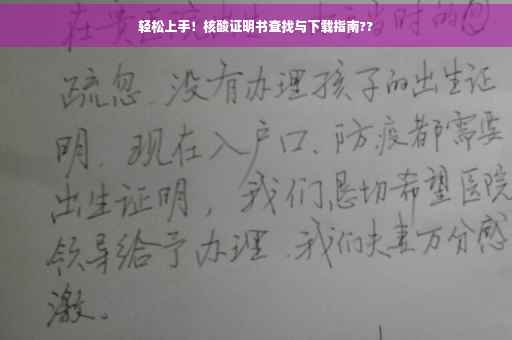 轻松上手！核酸证明书查找与下载指南??
在 当时的
疏忽、没有办理孩子的出生证
明、现在入户口、防疫都需要
出生证明，我们恳切希望医院
领导给予办理、我们夫妻万分感
激。